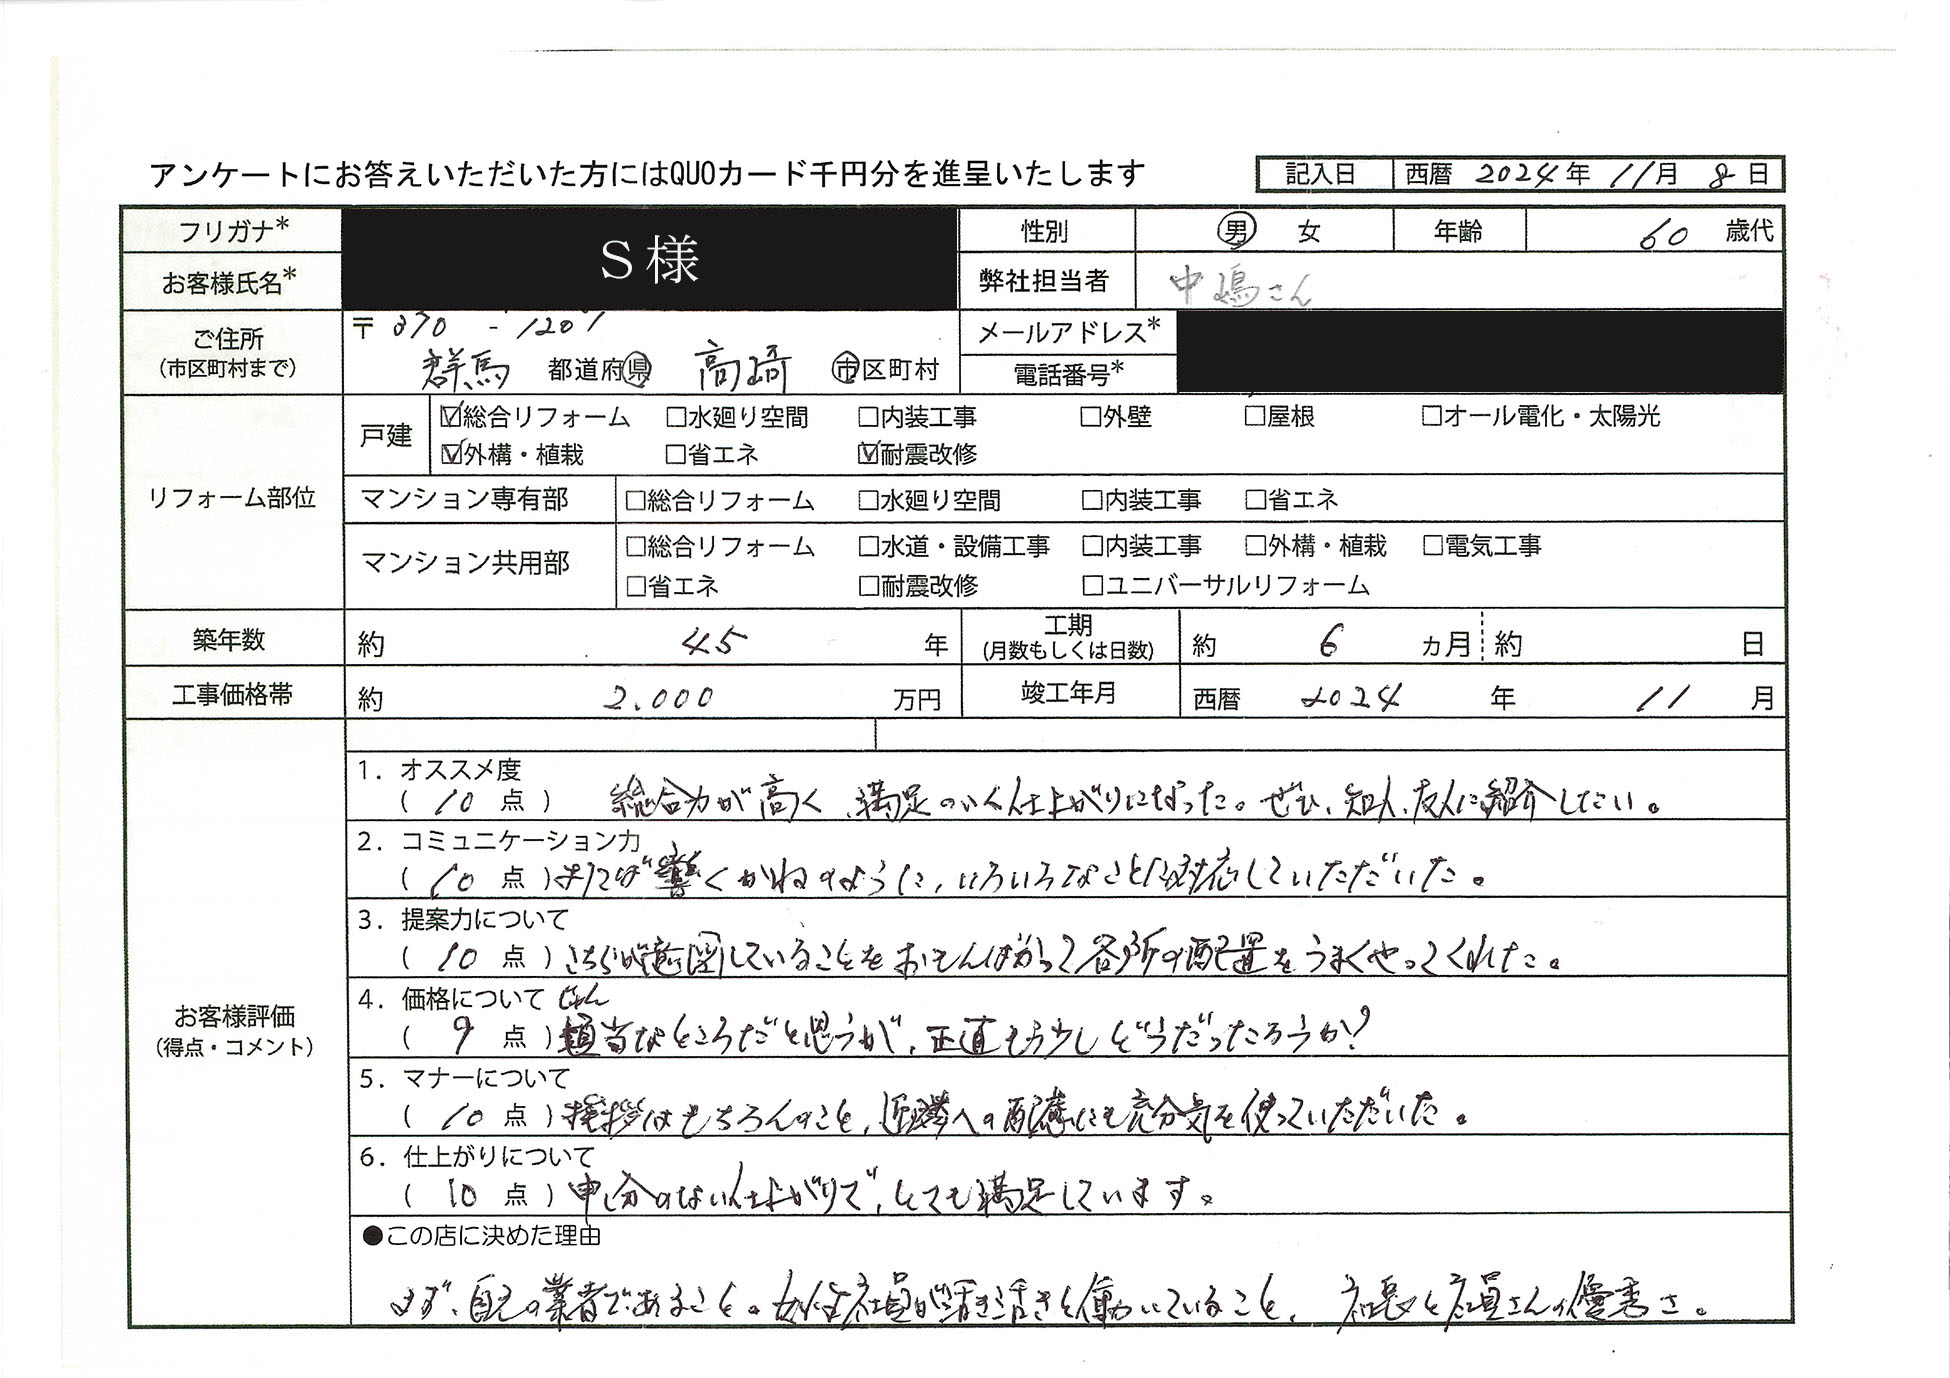 アンケートにお答えいただいた方にはQUOカード千円分を進呈いたします
記入日 西暦 2024年 11月 8日
フリガナ* S様 性別 男 女 年齢 60 歳代
お客様氏名* 弊社担当者 中嶋さん
ご住所 〒370-1201 メールアドレス*
(市区町村まで) 群馬 都道府県 高崎 市区町村 電話番号*
リフォーム部位
戸建 ☑総合リフォーム □水廻り空間 □内装工事 □外壁 □屋根 □オール電化・太陽光
☑外構・植栽 □省エネ ☑耐震改修
マンション専有部 □総合リフォーム □水廻り空間 □内装工事 □省エネ
マンション共用部 □総合リフォーム □水道・設備工事 □内装工事 □外構・植栽 □電気工事
□省エネ □耐震改修 □ユニバーサルリフォーム
築年数 約 45 年 工期 (月数もしくは日数) 約 6 ヵ月 約 日
工事価格帯 約 2.000 万円 竣工年月 西暦 2024 年 11 月
お客様評価
(得点・コメント)
1．オススメ度
( 10 点 ) 総合力が高く、満足のいく仕上がりになった。ぜひ、知人、友人に紹介したい。
2．コミュニケーション力
( 10 点 ) 打てば響くかねのように、いろいろなことに対応していただいた。
3．提案力について
( 10 点 ) こちらが意図していることをおもんばかって各所の配置をうまくやってくれた。
4．価格について
( 9 点 ) 当なところだと思うが、正直もう少しどうだったろうか?
5．マナーについて
( 10 点 ) 挨拶はもちろんのこと、近隣への配慮にも充分気を使っていただいた。
6．仕上がりについて
( 10 点 ) 申し分のない仕上がりで、とても満足しています。
●この店に決めた理由
まず、地元の業者であること。女性社員が活き活きと働いていること、社長と社員さんの優秀さ。